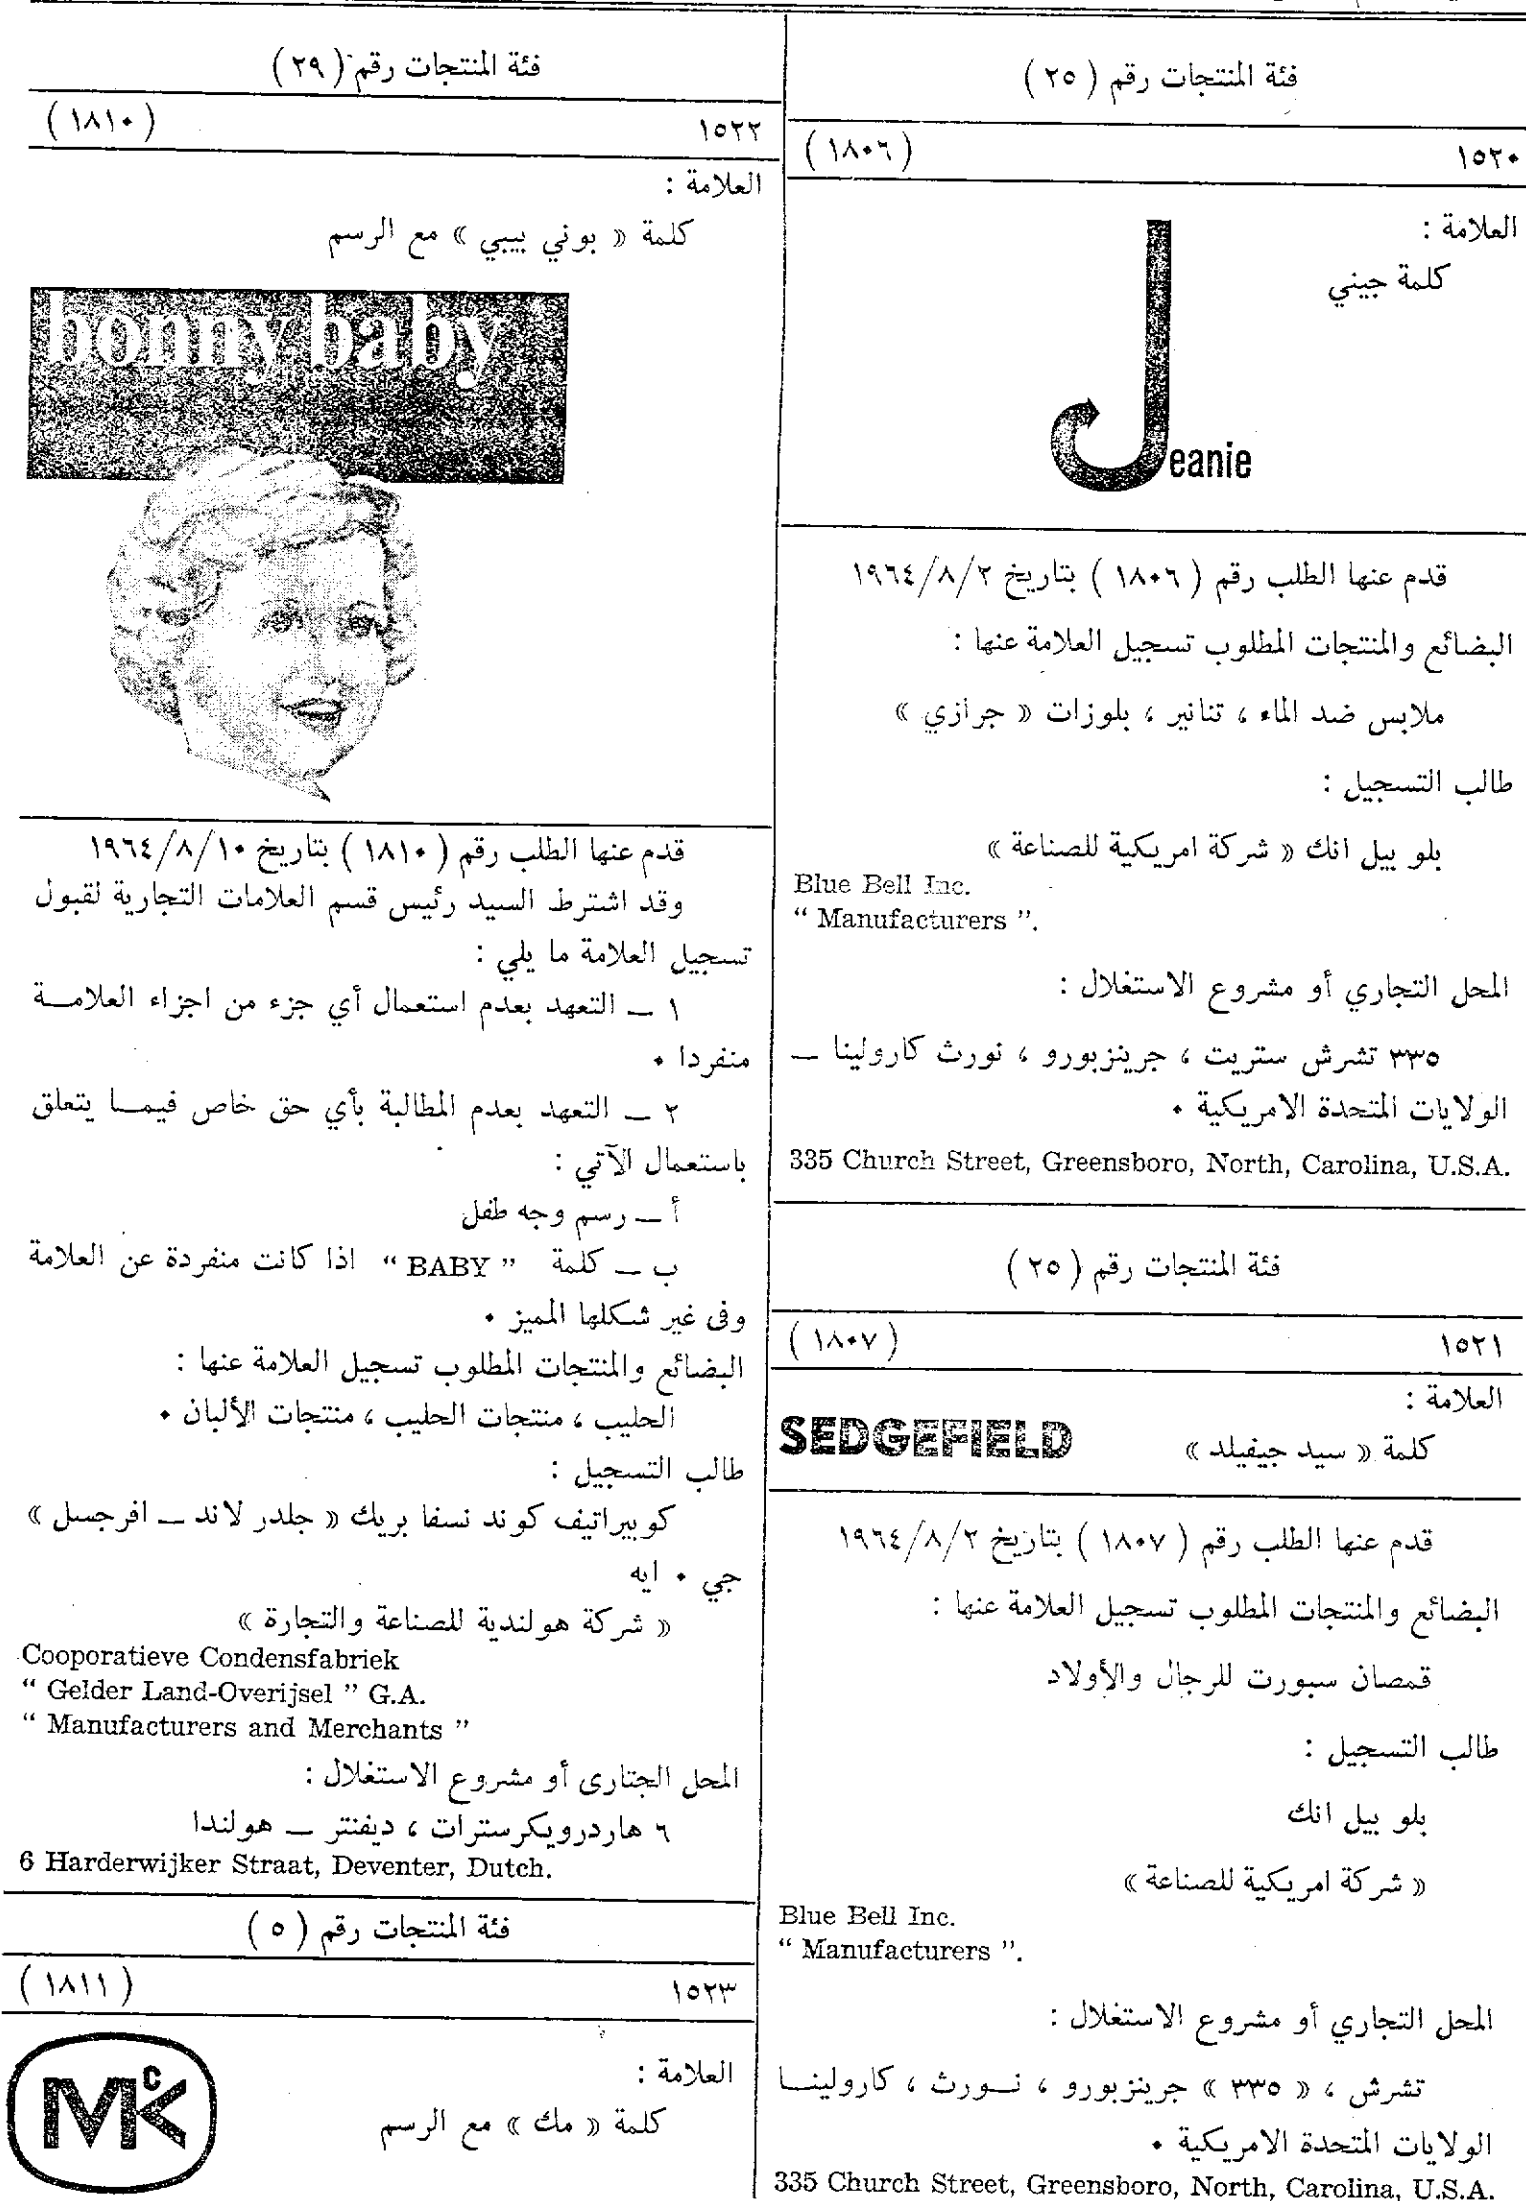 فئة المنتجات رقم ( ٢٥ )
١٥٢٠ ( ١٨٠٦ )
العلامة :
كلمة جيني
Jeanie
قدم عنها الطلب رقم ( ١٨٠٦ ) بتاريخ ١٩٦٤/٨/٢
البضائع والمنتجات المطلوب تسجيل العلامة عنها :
ملابس ضد الماء ، تنانير ، بلوزات « جرازي »
طالب التسجيل :
بلو بيل انك « شركة امريكية للصناعة »
Blue Bell Inc.
“ Manufacturers ”.
المحل التجاري أو مشروع الاستغلال :
٣٣٥ تشرش ستريت ، جرينزبورو ، نورث كارولينا ــ
الولايات المتحدة الامريكية ٠
335 Church Street, Greensboro, North, Carolina, U.S.A.
فئة المنتجات رقم ( ٢٥ )
١٥٢١ ( ١٨٠٧ )
العلامة :
كلمة « سيد جيفيلد » SEDGEFIELD
قدم عنها الطلب رقم ( ١٨٠٧ ) بتاريخ ١٩٦٤/٨/٢
البضائع والمنتجات المطلوب تسجيل العلامة عنها :
قمصان سبورت للرجال والأولاد
طالب التسجيل :
بلو بيل انك
« شركة امريكية للصناعة »
Blue Bell Inc.
“ Manufacturers ”.
المحل التجاري أو مشروع الاستغلال :
تشرش ، « ٣٣٥ » جرينزبورو ، نــورث ، كارولينــا
الولايات المتحدة الامريكية ٠
335 Church Street, Greensboro, North, Carolina, U.S.A.
فئة المنتجات رقم ( ٢٩ )
١٥٢٢ ( ١٨١٠ )
العلامة :
كلمة « بوني بيبي » مع الرسم
bonny baby
قدم عنها الطلب رقم ( ١٨١٠ ) بتاريخ ١٩٦٤/٨/١٠
وقد اشترط السيد رئيس قسم العلامات التجارية لقبول
تسجيل العلامة ما يلي :
١ ــ التعهد بعدم استعمال أي جزء من اجزاء العلامــة
منفردا ٠
٢ ــ التعهد بعدم المطالبة بأي حق خاص فيمــا يتعلق
باستعمال الآتي :
أ ــ رسم وجه طفل
ب ــ كلمة “ BABY ” اذا كانت منفردة عن العلامة
وفى غير شكلها المميز ٠
البضائع والمنتجات المطلوب تسجيل العلامة عنها :
الحليب ، منتجات الحليب ، منتجات الألبان ٠
طالب التسجيل :
كوبيراتيف كوند نسفا بريك « جلدر لاند ــ افرجسل »
جي ٠ ايه
« شركة هولندية للصناعة والتجارة »
Cooporatieve Condensfabriek
“ Gelder Land-Overijsel ” G.A.
“ Manufacturers and Merchants ”
المحل الجتارى أو مشروع الاستغلال :
٦ هاردرويكرسترات ، ديفنتر ــ هولندا
6 Harderwijker Straat, Deventer, Dutch.
فئة المنتجات رقم ( ٥ )
١٥٢٣ ( ١٨١١ )
العلامة :
كلمة « مك » مع الرسم
McK